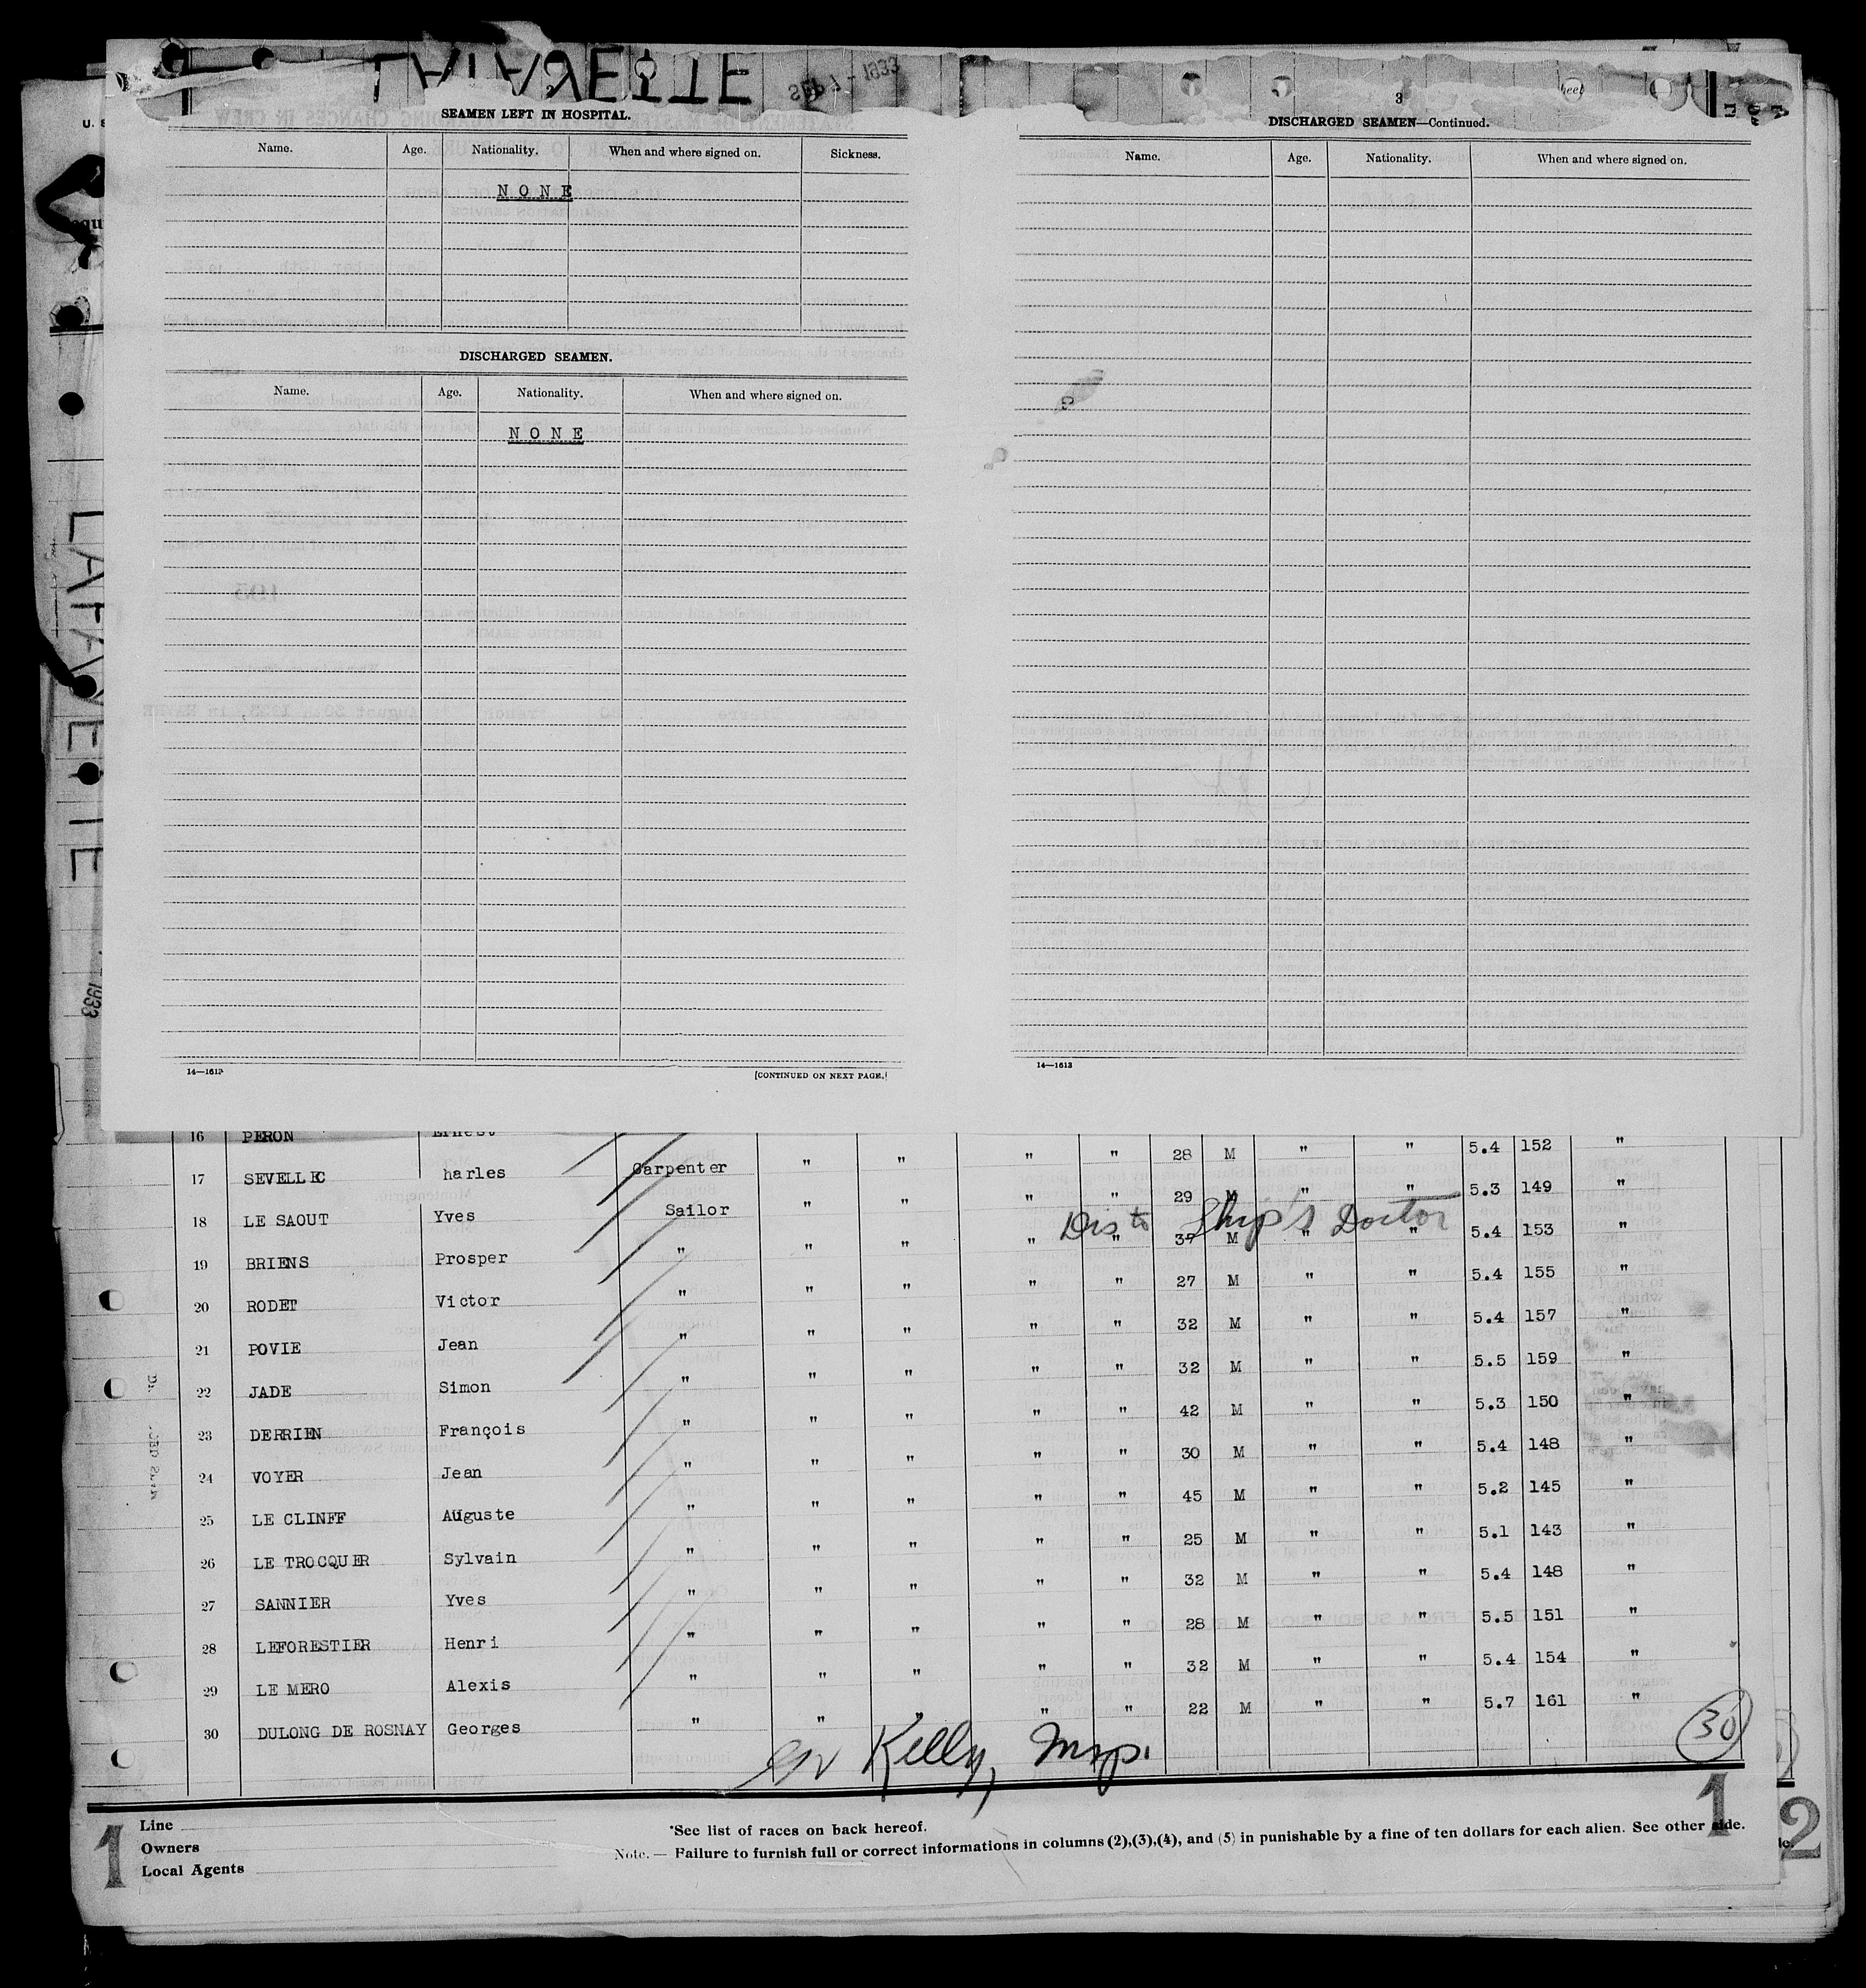 LAFAYETTE SEP 7 - 1933
LAFAYETTE
1933
2
SEAMEN LEFT IN HOSPITAL.
Name. Age. Nationality. When and where signed on. Sickness.
NONE
DISCHARGED SEAMEN.
Name. Age. Nationality. When and where signed on.
NONE
14—1613
[CONTINUED ON NEXT PAGE.]
3
DISCHARGED SEAMEN—Continued.
Name. Age. Nationality. When and where signed on.
14—1613
16 PERON Ernest
17 SEVELLEC harles Carpenter " " " " 28 M " " 5.4 152 "
18 LE SAOUT Yves Sailor " " " " 29 M " " 5.3 149 "
Dis to Ship's Doctor
19 BRIENS Prosper " " " " " 37 M " " 5.4 153 "
20 RODET Victor " " " " " 27 M " " 5.4 155 "
21 POVIE Jean " " " " " 32 M " " 5.4 157 "
22 JADE Simon " " " " " 32 M " " 5.5 159 "
23 DERRIEN François " " " " " 42 M " " 5.3 150 "
24 VOYER Jean " " " " " 30 M " " 5.4 148 "
25 LE CLINFF Auguste " " " " " 45 M " " 5.2 145 "
26 LE TROCQUER Sylvain " " " " " 25 M " " 5.1 143 "
27 SANNIER Yves " " " " " 32 M " " 5.4 148 "
28 LEFORESTIER Henri " " " " " 28 M " " 5.5 151 "
29 LE MERO Alexis " " " " " 32 M " " 5.4 154 "
30 DULONG DE ROSNAY Georges " " " " " 22 M " " 5.7 161 "
Kelly, Insp.
30
1
Line
Owners
Local Agents
*See list of races on back hereof.
Note.— Failure to furnish full or correct informations in columns (2),(3),(4), and (5) in punishable by a fine of ten dollars for each alien. See other side.
1
2